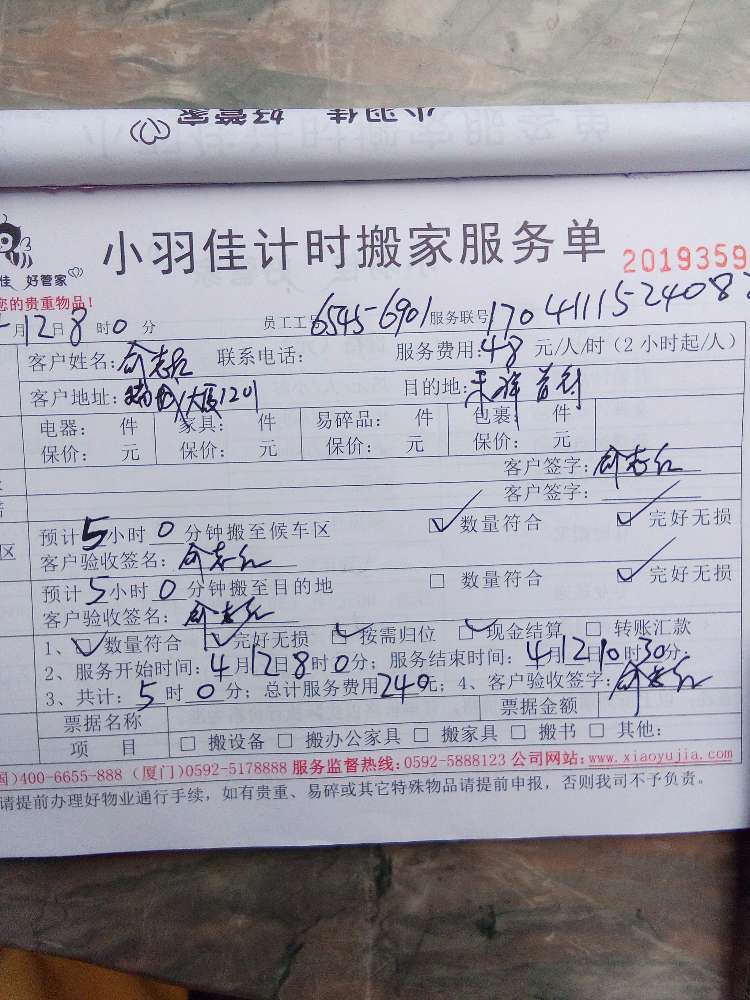 小羽佳 好管家
小羽佳计时搬家服务单
2019359
佳 好管家
您的贵重物品!
月12日8时0分 员工工号6545-6901 服务联号170411152408
客户姓名:俞志红 联系电话: 服务费用:48元/人/时(2小时起/人)
客户地址:大厦1201 目的地:
电器: 件 家具: 件 易碎品: 件 包裹: 件
保价: 元 保价: 元 保价: 元 保价: 元
客户签字:俞志红
客户签字:
预计5小时0分钟搬至候车区 ☑数量符合 ☑完好无损
区 客户验收签名:俞志红
预计5小时0分钟搬至目的地 □数量符合 ☑完好无损
客户验收签名:俞志红
1、☑数量符合 ☑完好无损 ☑按需归位 ☑现金结算 □转账汇款
2、服务开始时间:4月12日8时0分;服务结束时间:4月12日10时30分;
3、共计:5时0分;总计服务费用240元;4、客户验收签字:俞志红
票据名称 票据金额
项 目 □搬设备 □搬办公家具 □搬家具 □搬书 □其他:
国)400-6655-888 (厦门)0592-5178888 服务监督热线:0592-5888123 公司网站:www.xiaoyujia.com
请提前办理好物业通行手续,如有贵重、易碎或其它特殊物品请提前申报,否则我司不予负责。